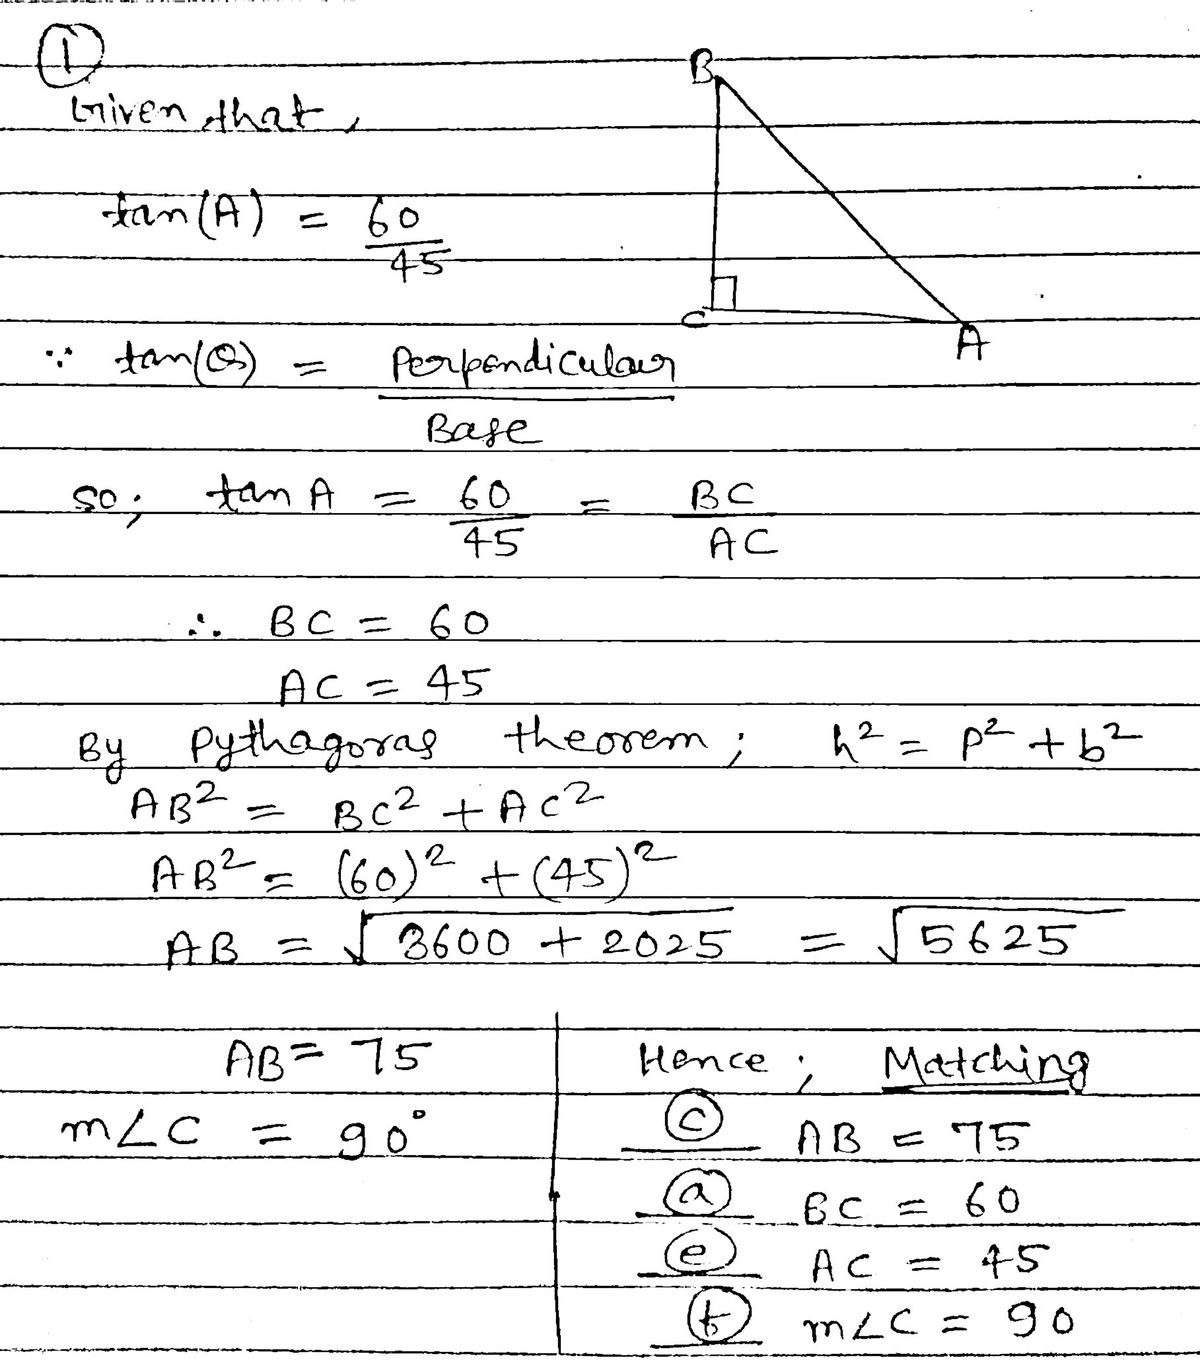 ①
Given that,
B
tan(A) = 60/45
C
A
∵ tan(θ) = Perpendicular/Base
so; tan A = 60/45 = BC/AC
∴ BC = 60
AC = 45
By Pythagoras theorem; h² = p² + b²
AB² = BC² + AC²
AB² = (60)² + (45)²
AB = √3600 + 2025 = √5625
AB = 75
m∠C = 90°
Hence; Matching
ⓒ AB = 75
ⓐ BC = 60
ⓔ AC = 45
m∠C = 90